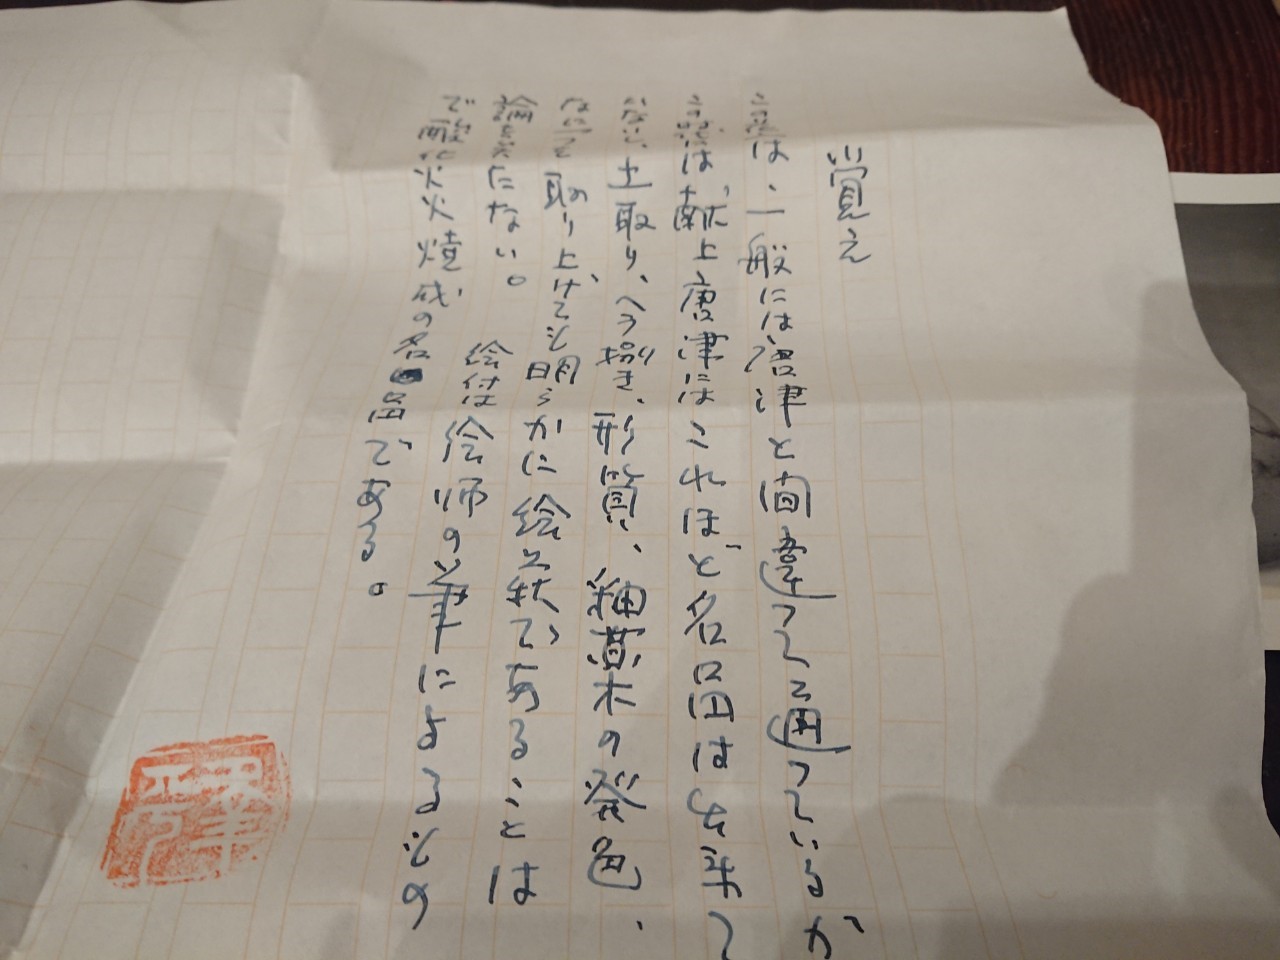 覚え
は、一般には唐津と間違って通っているが
は献上唐津にはこれほど名品は出来て
土取り、へラ捌き、形質、釉薬木の発色、
取り上げても明らかに絵で あることは
論またない。 絵付は絵師の筆によるもの
で酸化火焼成の名品である。